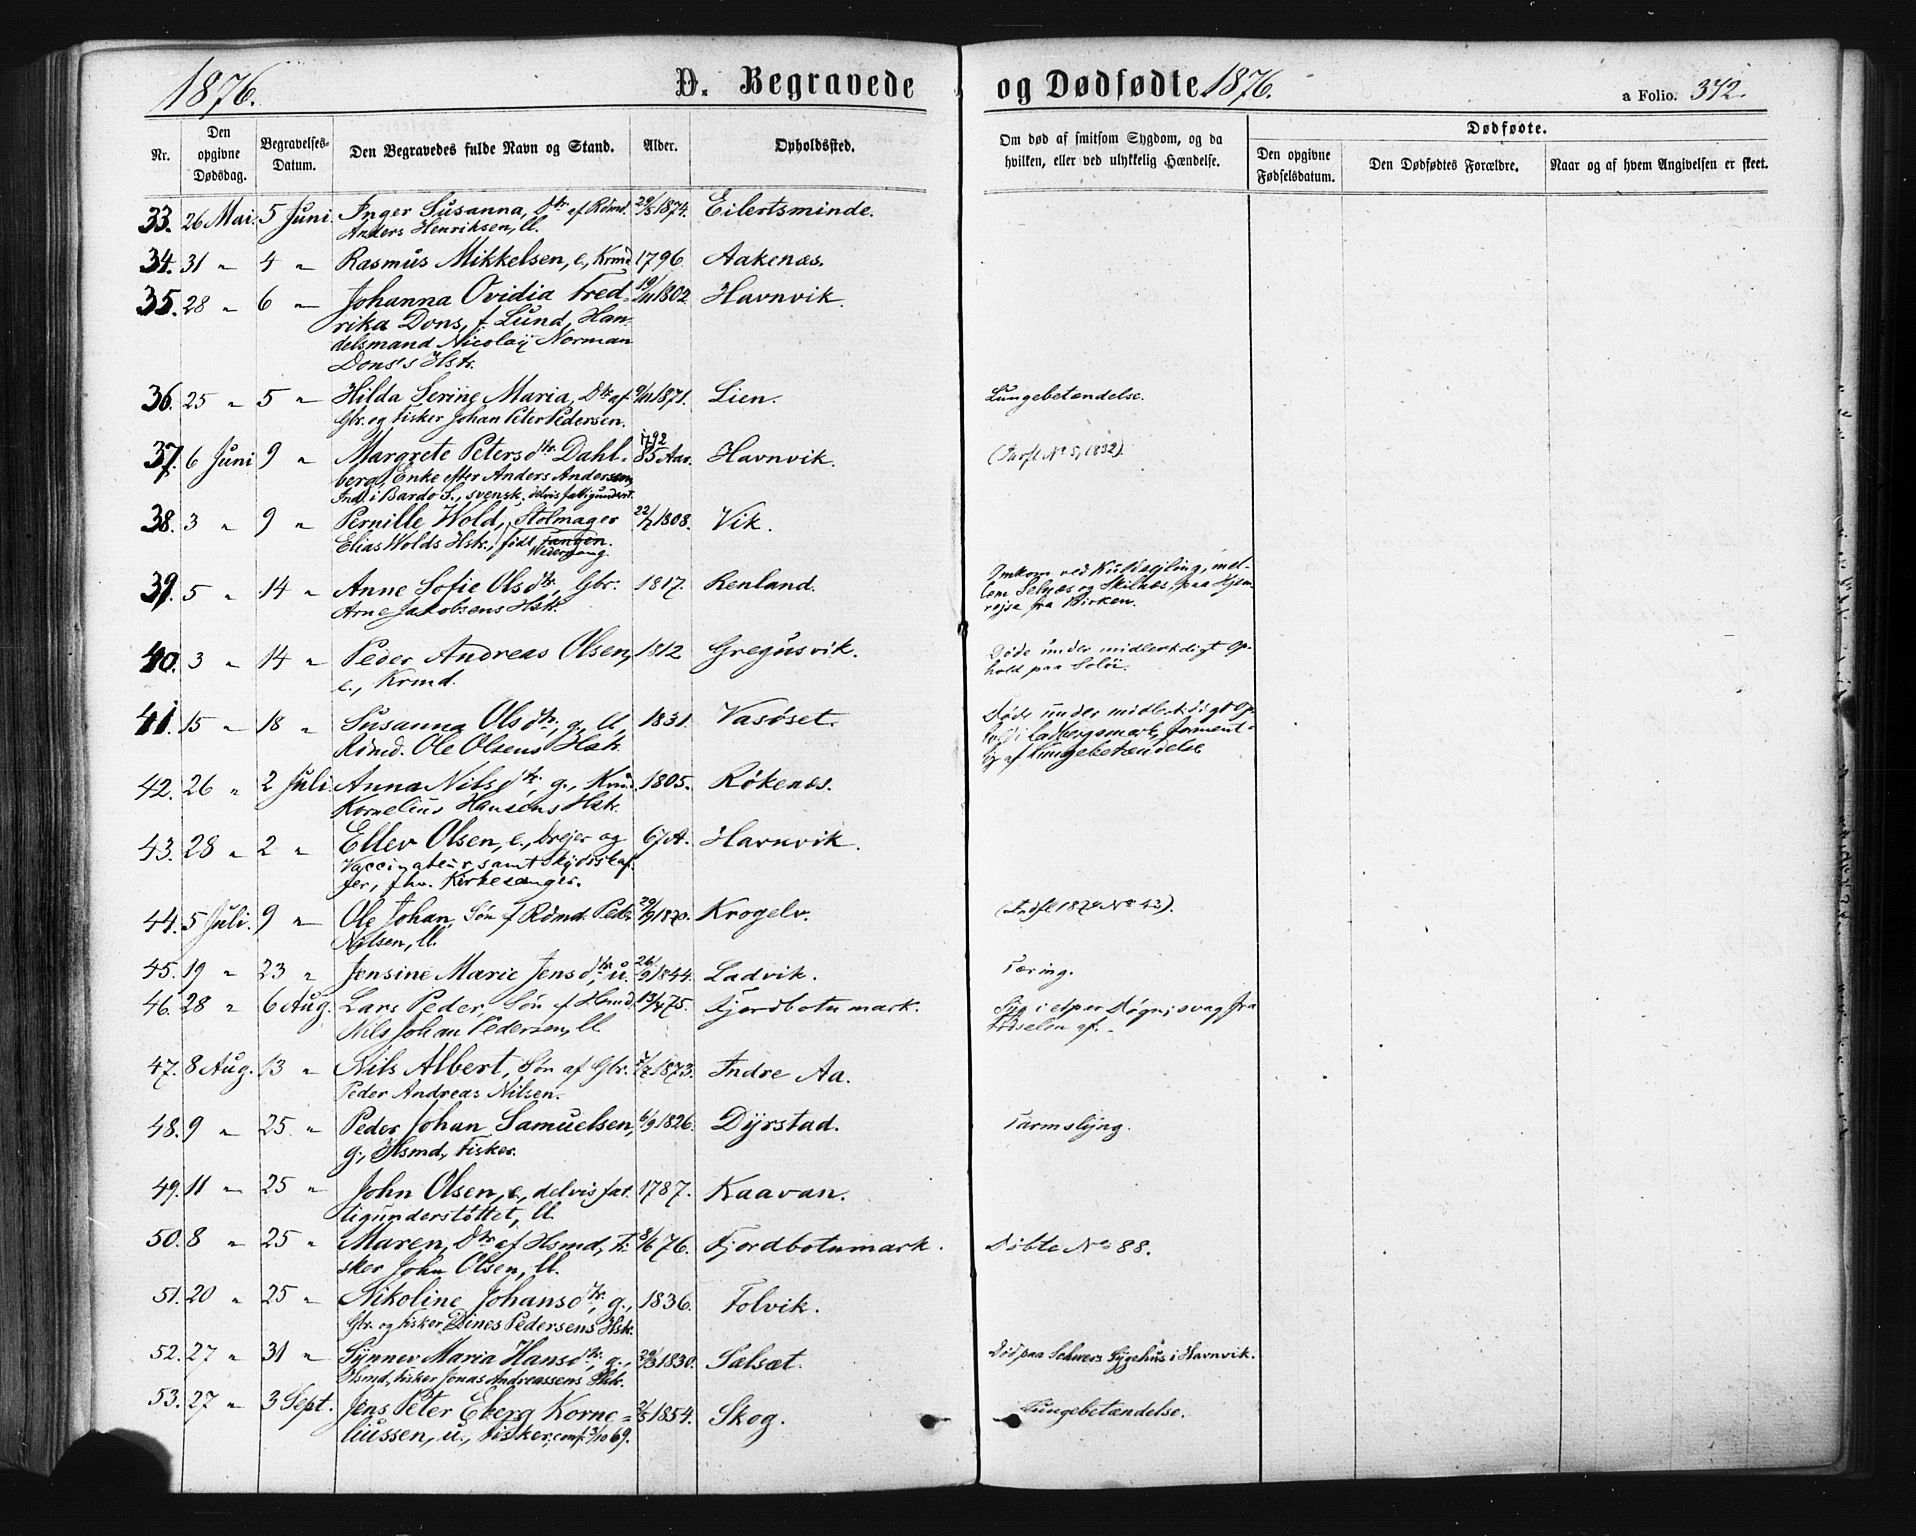 1876.
D. Begravede
og Dødfødte 1876.
a Folio. 342.
Nr.
Den opgivne Dødsdag.
Begravelses-Datum.
Den Begravedes fulde Navn og Stand.
Alder.
Opholdssted.
Om død af smitsom Sygdom, og da
hvilken, eller ved ulykkelig Hændelse.
Dødfødte.
Den opgivne Fødselsdatum.
Den Dødfødtes Forældre.
Naar og af hvem Angivelsen er skeet.
33. 26 Mai. 5 Juni. Inger Susanna, Dtr. af Rdmd. 29/5 1874. Eilertsminde.
Anders Henriksen, ll.
34. 31 " 4 " Rasmus Mikkelsen, e., Krmd 1796. Aakenæs.
35. 28 " 6 " Johanna Ovidia Fred- 19/11 1802. Havnvik.
rika Dons, f. Lund, Han-
delsmand Nicolaÿ Norman
Dons's Hstr.
36. 25 " 5 " Hilda Serine Maria, Dtr. af 9/11 1871. Lien. Lungebetændelse.
Gbr. og Fisker Johan Peter Pedersen.
37. 6 Juni 9 " Margrete Petersdtr. Dahl- 1792 85 Aar. Havnvik.
berg, Enke efter Anders Andersen,
Ind. i Bardo S., svensk, delvis fattigunderst.
38. 3 " 9 " Pernille Wold, Stolmager 22/7 1808. Vik.
Elias Wolds Hstr., født Fangen.
Wedergang.
39. 5 " 14 " Anne Sofie Olsdtr., Gbr. 1817. Renland. Omkom ved Kuldsejling, mel-
Arne Jakobsens Hstr. lem Selnæs og Skilnæs, paa Hjem-
rejse fra Kirken.
40. 3 " 14 " Peder Andreas Olsen, 1812 Gregusvik. Døde under midlertidigt Op-
e., Krmd. hold paa Soløi.
41. 15 " 18 " Susanna Olsdtr., g., ll., 1831. Vasøset. Døde under midlertidigt Op-
Rdmd. Ole Olsens Hstr. hold i Lavangsmark, forment-
lig af Lungebetændelse
42. 26 " 2 Juli. Anna Nilsdtr., g., Krmd 1805. Røkenæs.
Kornelius Hansens Hstr.
43. 28 " 2 " Ellev Olsen, e., Drejer og 67 A. Havnvik.
Vaccinateur, samt Skydsskaf-
fer, fhv. Kirkesanger.
44. 5 Juli. 9 " Ole Johan, Søn af Rdmd. Peder 29/9 1870. Krogelv. (Indfl. 1874 No 43).
Nilsen, ll.
45. 19 " 23 " Jensine Marie Jensdtr., u. 26/9 1844. Ladvik. Tæring.
46. 28 " 6 Aug. Lars Peder, Søn af Hsmd. 13/4 75. Fjordbotnmark. Syg i et par Døgn; svag fra
Nils Johan Pedersen, ll. Fødselen af.
47. 8 Aug. 13 " Nils Albert, Søn af Gbr. 7/7 1873. Indre Aa.
Peder Andreas Nilsen.
48. 9 " 25 " Peder Johan Samuelsen, 6/9 1826. Dÿrstad. Tarmslyng.
g., Hsmd, Fisker.
49. 11 " 25 " John Olsen, e., delvis fat- 1787. Kaavan.
tigunderstøttet, ll.
50. 8 " 25 " Maren, Dtr. af Hsmd, Fi- 8/6 76. Fjordbotnmark. Døbte No 88.
sker John Olsen, ll.
51. 20 " 25 " Nikoline Johansdtr., g., 1836. Folvik.
Gbr. og Fisker Dines Pedersens Hstr.
52. 27 " 31 " Synnev Maria Hansdtr., g., 29/3 1830. Salsat. Død paa Schwers Sygehus i Havnvik.
Hsmd, Fisker Jonas Andreassens Hstr.
53. 27 " 3 Sept. Jens Peter Eberg Korne- 2/5 1854. Skog. Lungebetændelse.
liussen, u., Fisker, conf. 3/10 69.